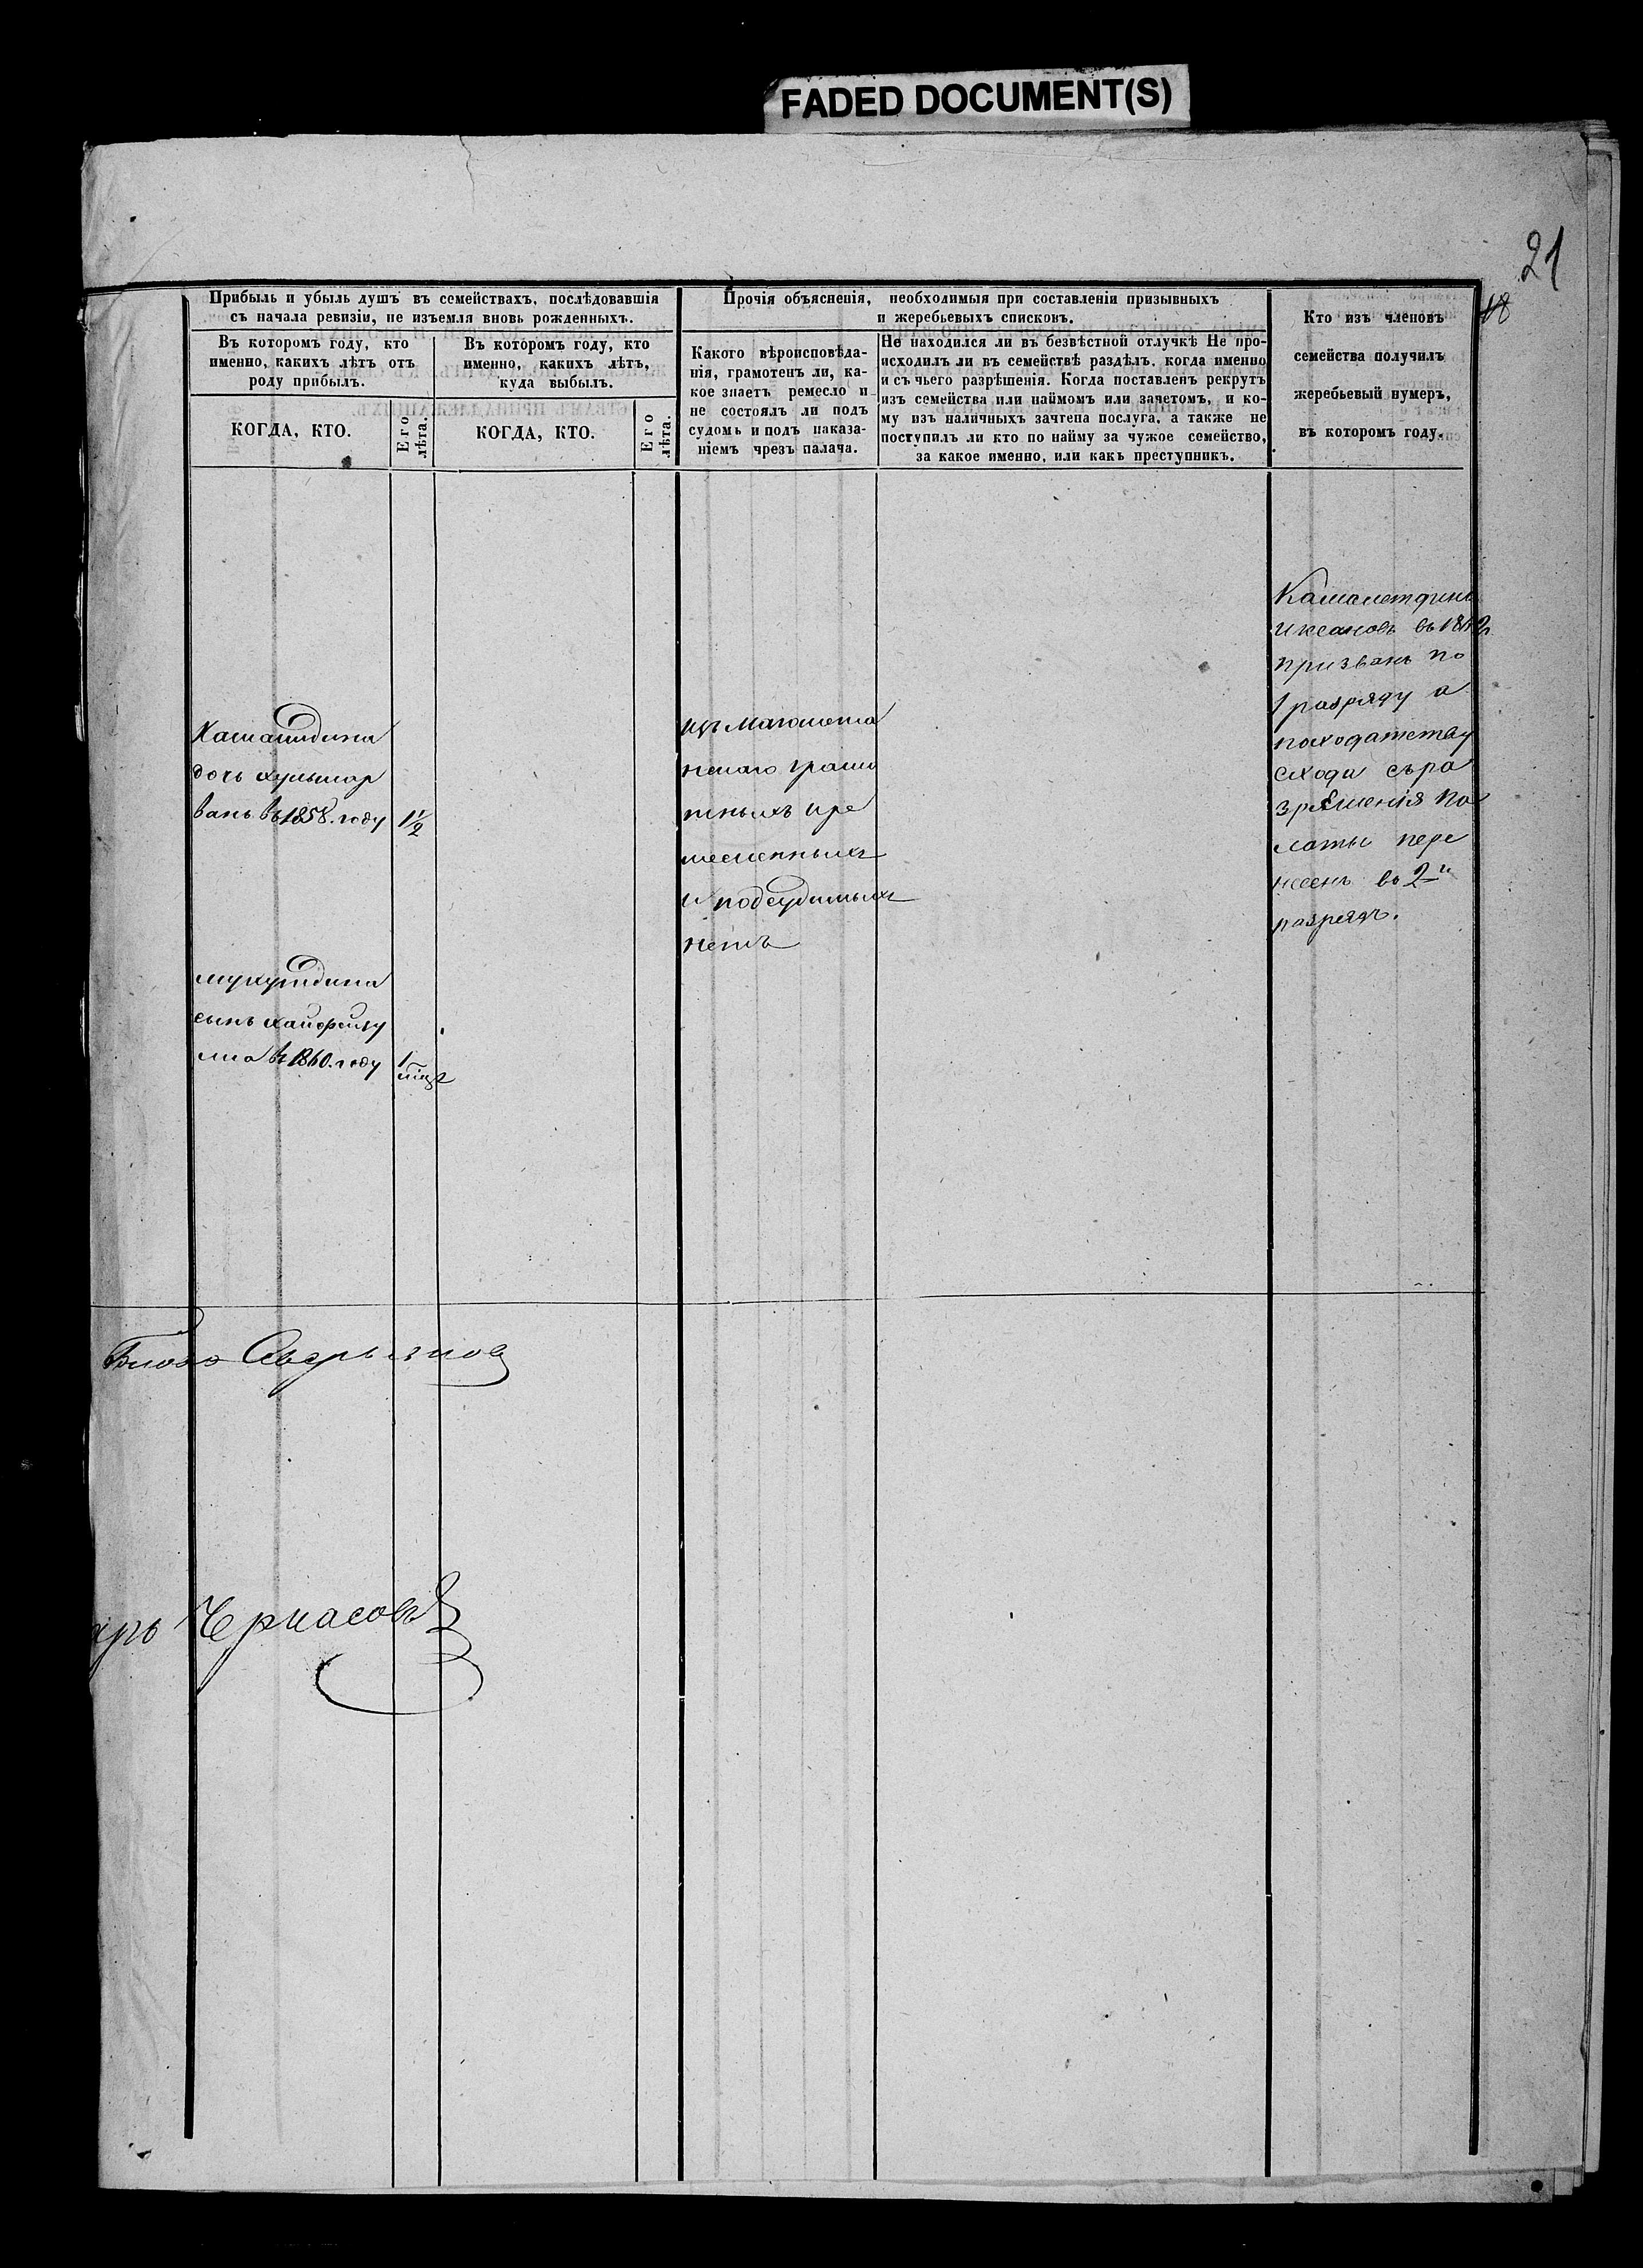 FADED DOCUMENT(S)
21
18
Прибыль и убыль душъ въ семействахъ, послѣдовавшія
съ начала ревизіи, не изъемля вновь рожденныхъ.
Въ которомъ году, кто
именно, какихъ лѣтъ отъ
роду прибылъ.
КОГДА, КТО.
Его
лѣта.
Въ которомъ году, кто
именно, какихъ лѣтъ,
куда выбылъ.
КОГДА, КТО.
Его
лѣта.
Прочія объясненія, необходимыя при составленіи призывныхъ
и жеребьевыхъ списковъ.
Какого вѣроисповѣда-
нія, грамотенъ ли, ка-
кое знаетъ ремесло и
не состоялъ ли подъ
судомъ и подъ наказа-
ніемъ чрезъ палача.
Не находился ли въ безвѣстной отлучкѣ Не про-
исходилъ ли въ семействѣ раздѣлъ, когда именно
и съ чьего разрѣшенія. Когда поставленъ рекрутъ
изъ семейства или наймомъ или зачетомъ, и ко-
му изъ наличныхъ зачтена послуга, а также не
поступилъ ли кто по найму за чужое семейство,
за какое именно, или какъ преступникъ.
Кто изъ членовъ
семейства получилъ
жеребьевый нумеръ,
въ которомъ году.
дочь
въ 1858. году 1 1/2
сынъ
въ 1860. году 1
изъ Магомета
нскаго грамо
тныхъ и ре
месленныхъ
и подсудимыхъ
нетъ
въ
призванъ по
1 разряду а
по ходатству
схода съ ра
зрѣшенія Па
латы пере
несенъ во 2й
разрядъ.
Черкасовъ